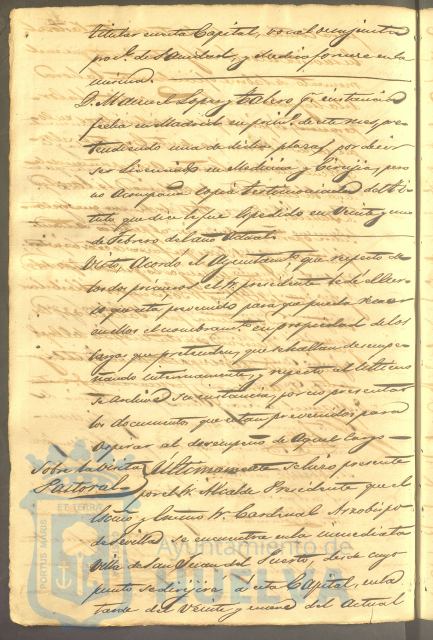 titular en esta Capital, vocal de la junta
prov.l de Sanidad, y Medico forense en la
misma.
D. Manuel Lopez y Otero q.e en instancia
fecha en Madrid en prim.o de este mes pre-
tendiendo una de dichas plazas, por decir
ser Licenciado en Medicina y Cirujia, pero
no acompaña copia testimoniada del Ti-
tulo que dice le fue espedido en Veinte y uno
de Febrero del año actual.
Visto, Acordó el Ayuntamt.o que respecto de
los dos primeros el Sr. presidente
que está prevenido para que pueda recaer
en ellos el nombramt.o en propiedad de los
cargos que pretenden, que se hallan desempe-
ñando interinamente, y respecto al último
se Archive su instancia, por no presentar
los documentos que estan prevenidos para
aspirar al desempeño de Aquel Cargo
Sobre la Visita
Pastoral
Ultimamente se hizo presente
por el Sr. Alcalde Presidente que el
Escmo y Eminmo Sr. Cardenal Arzobispo
de Sevilla se encuentra en la inmediata
Villa de San Juan del Puerto, desde cuyo
punto se dirijirá a esta Capital, en la
tarde del Veinte y nueve del Actual
Ayuntamiento de
HUELVA
PORTUS MARIS
ET TERRÆ